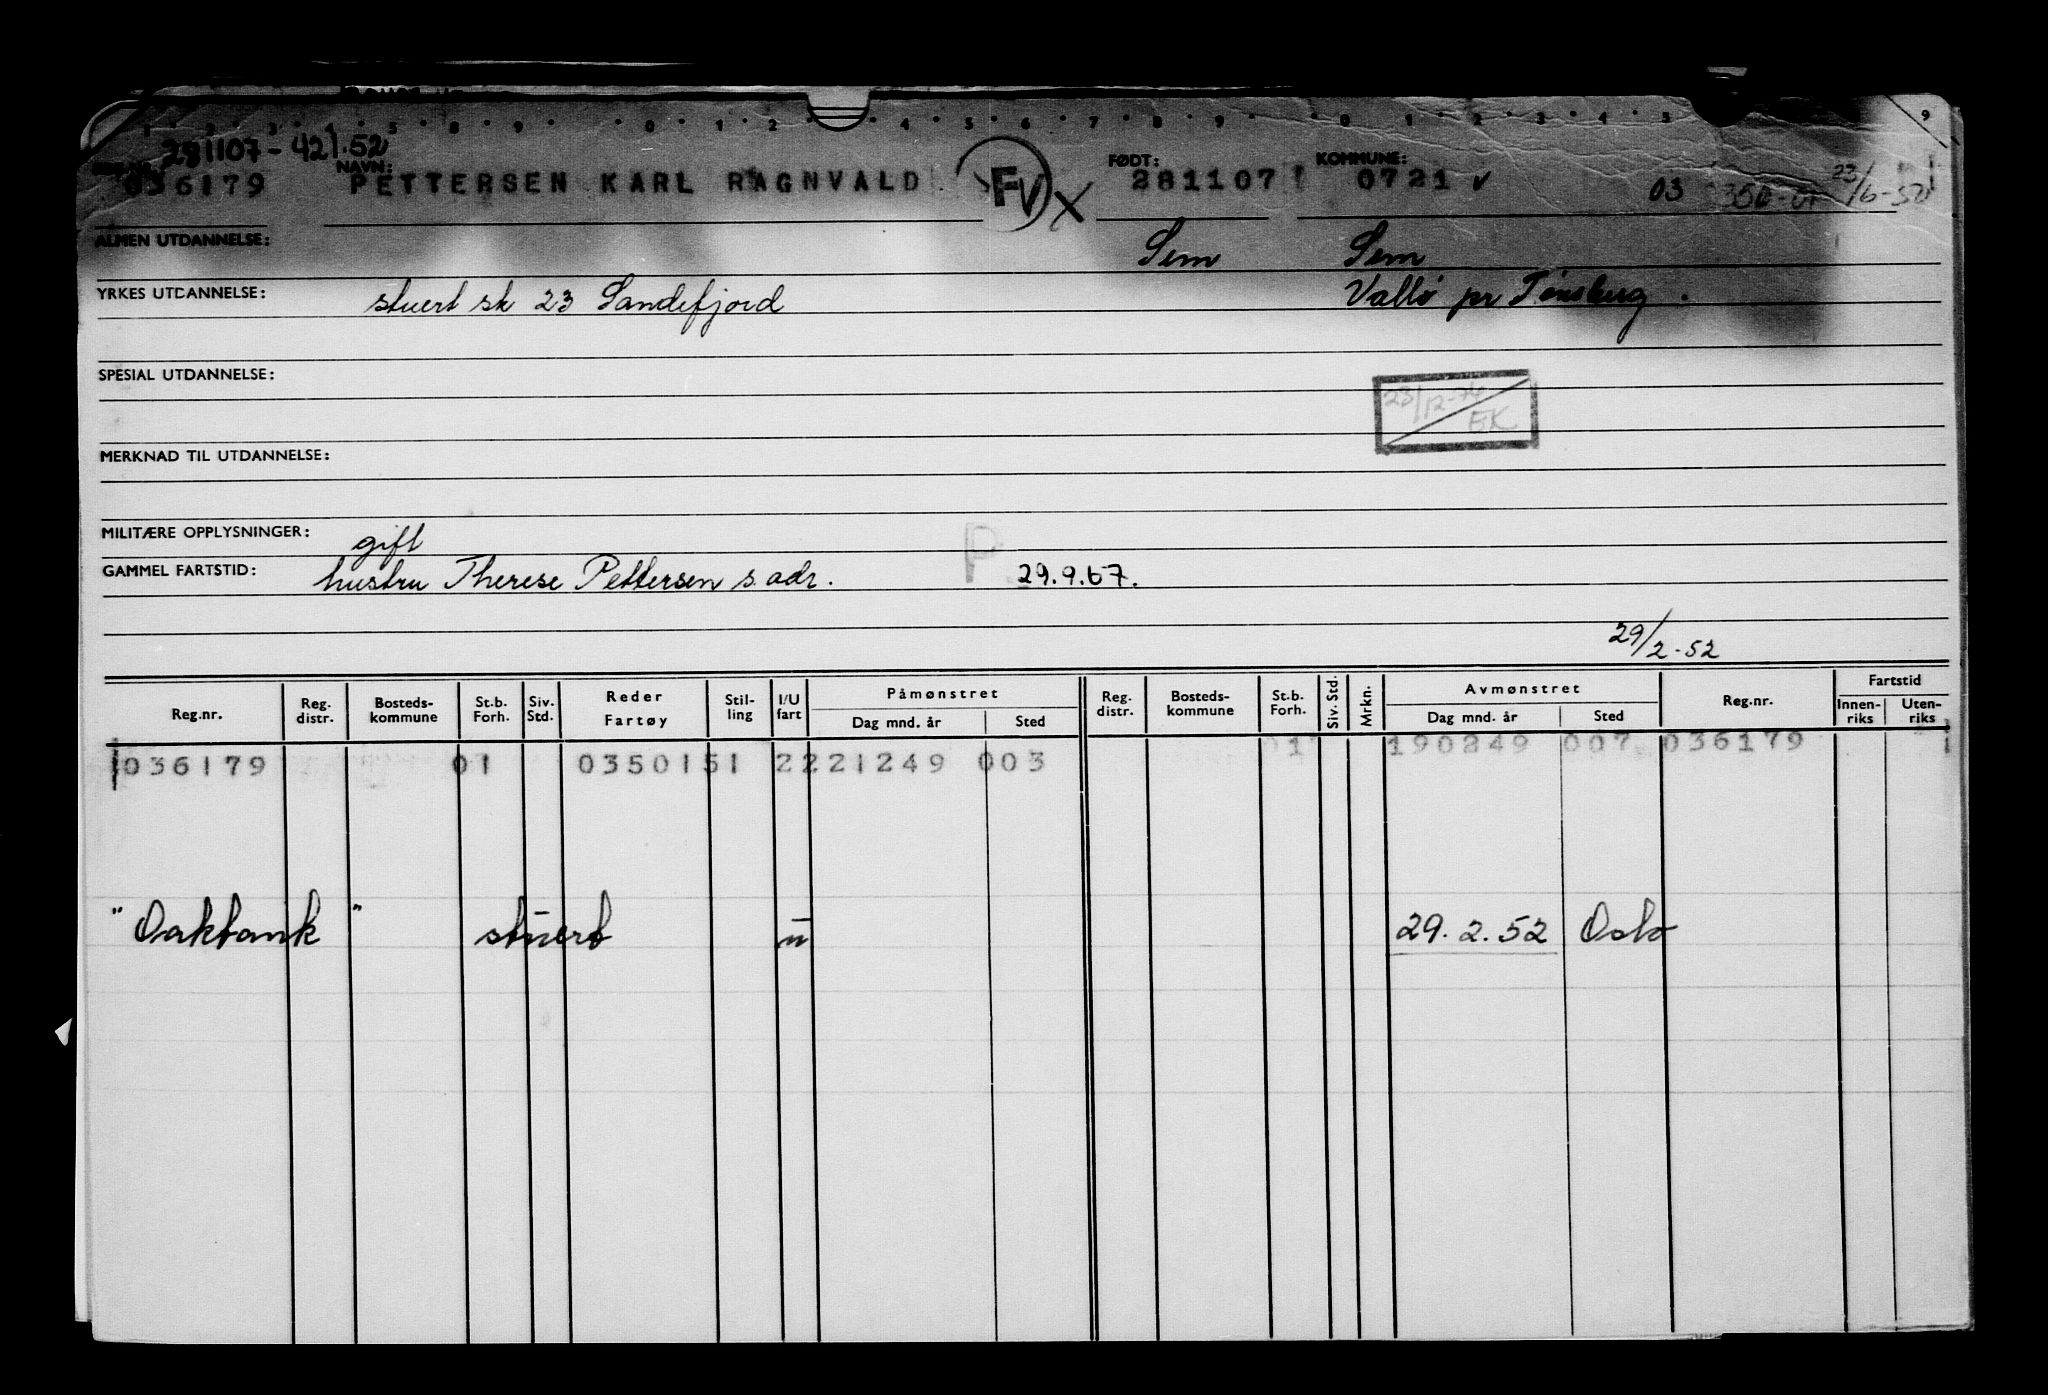 281107-421.52
NAVN: FØDT: KOMMUNE:
036179 PETTERSEN KARL RAGNVALD FV X 281107 0721 ✓ 03 23/6-52
ALMEN UTDANNELSE: Sem Sem
YRKES UTDANNELSE: stuert sk 23 Sandefjord Vallø pr Tønsberg.
SPESIAL UTDANNELSE:
23/12-74 EK
MERKNAD TIL UTDANNELSE:
MILITÆRE OPPLYSNINGER: gift
GAMMEL FARTSTID: hustru Therese Pettersen s.adr. P 29.9.67.
29/2-52
Reg.nr. Reg. distr. Bosteds-kommune St.b. Forh. Siv. Std. Reder Fartøy Stil-ling I/U fart Påmønstret Dag mnd. år Sted Reg. distr. Bosteds-kommune St.b. Forh. Siv. Std. Mrkn. Avmønstret Dag mnd. år Sted Reg.nr. Fartstid Innen-riks Uten-riks
036179 01 0350151 2221249 003 01 190249 007 036179 1
"Oakbank" stuert u 29.2.52 Oslo